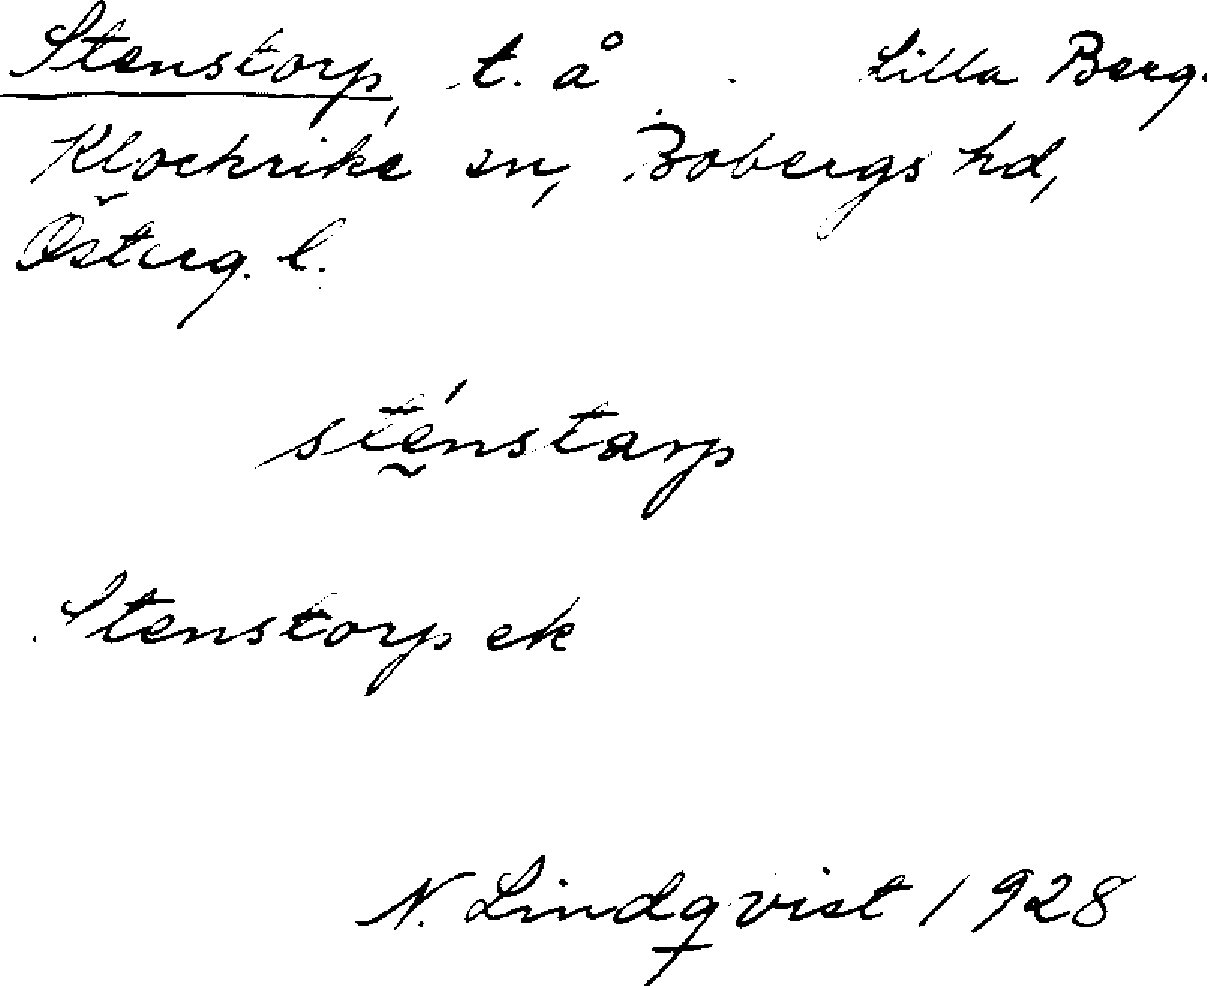 Stenstorp, t. å Lilla Berg.
Klockrike sn, Bobergs hd,
Österg. l.
sténstarp
Stenstorp ek
N. Lindqvist 1928